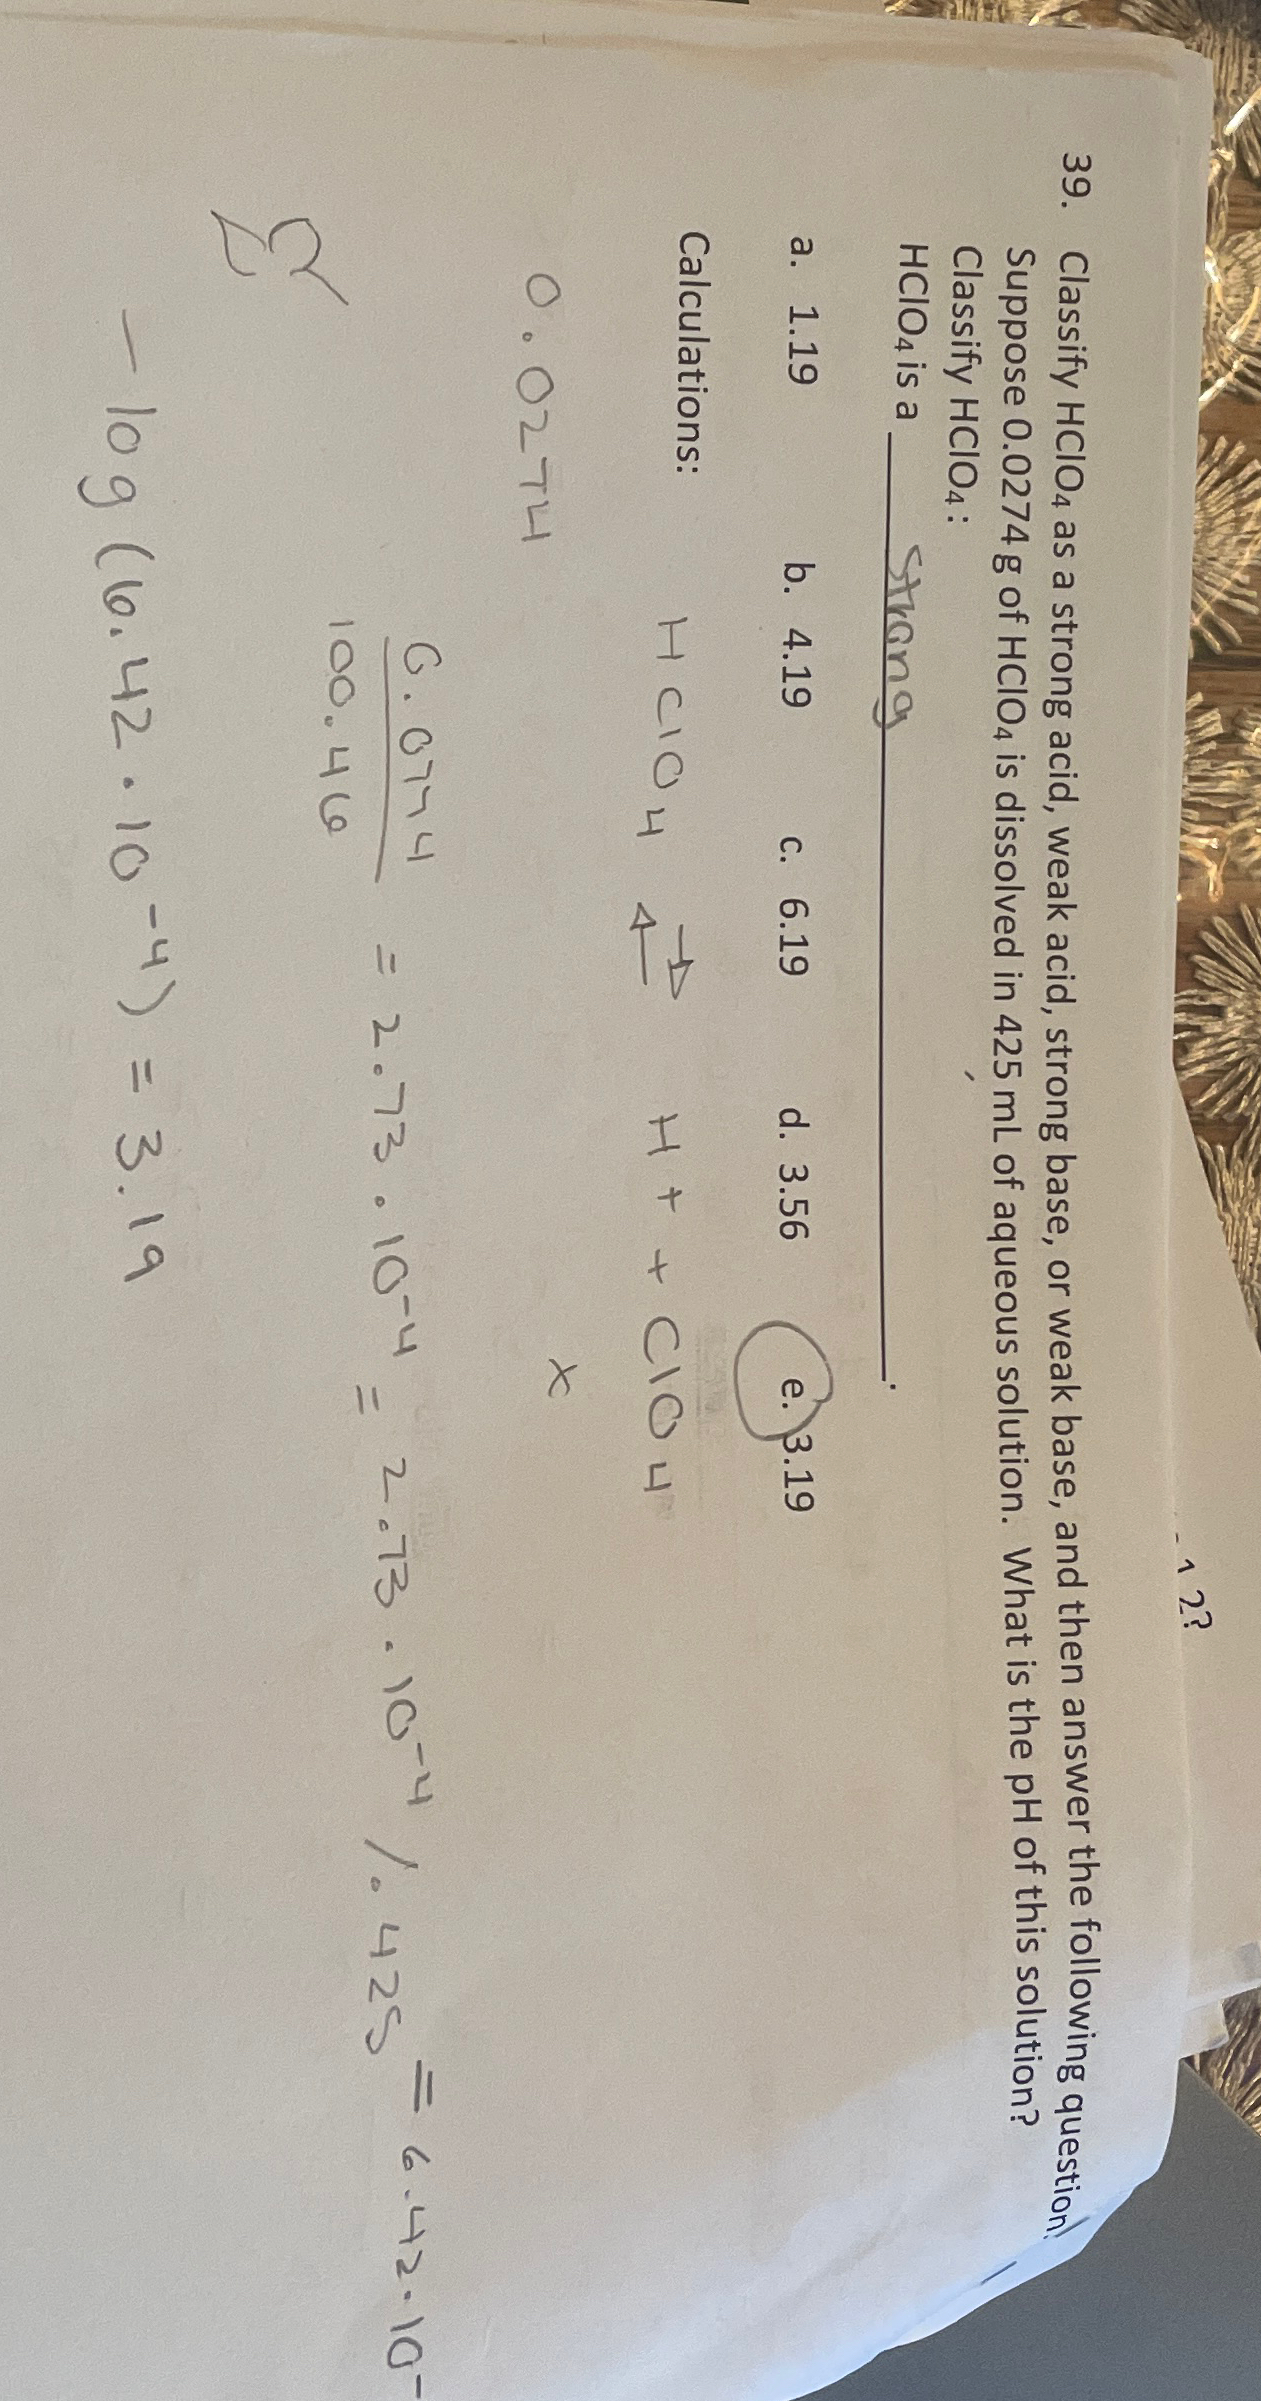 1 2?
39. Classify HClO4 as a strong acid, weak acid, strong base, or weak base, and then answer the following question.
Suppose 0.0274 g of HClO4 is dissolved in 425 mL of aqueous solution. What is the pH of this solution?
Classify HClO4 :
HClO4 is a strong.
a. 1.19 b. 4.19 c. 6.19 d. 3.56 e. 3.19
Calculations: HClO4 ⇄ H+ + ClO4
0.0274 x
0.0774 / 100.46 = 2.73 · 10-4 = 2.73 · 10-4 / .425 = 6.42 · 10-
- log (6.42 · 10-4) = 3.19